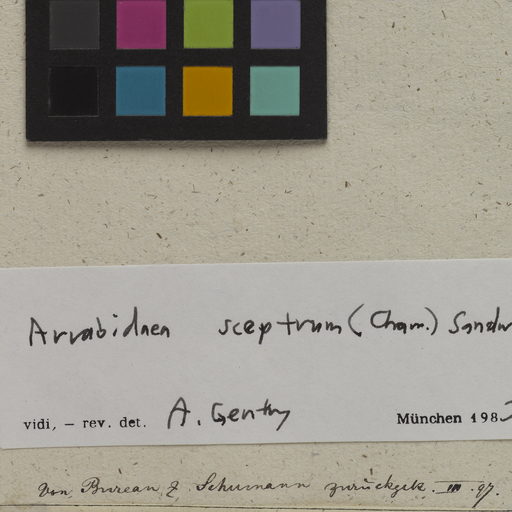 Arrabidaea sceptrum (Cham.) Sandw
vidi, – rev. det. A. Gentry München 198
Von Bureau & Schumann zurückgek. III. 97.